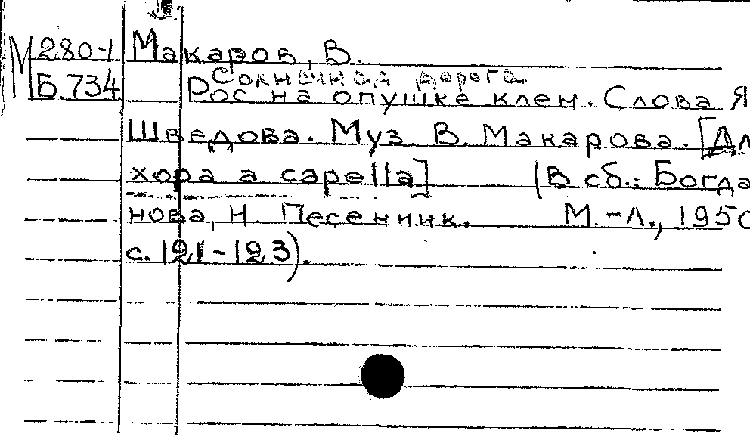 М 280-1 Макаров, В.
Солнечная дорога.
Б.734 Рос на опушке клен. Слова Я
Шведова. Муз В. Макарова. [Дл
хора a capella] (В сб.: Богда
нова, Н. Песенник. М.-Л., 1950
с. 121-123).